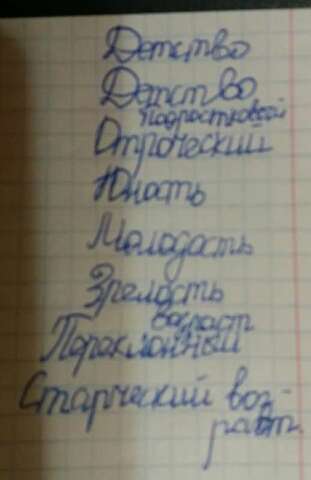 Детство
Детство
Подростковой
Отроческий
Юность
Молодасть
Зрелость
возраст
Переклонный
Старческий воз-
раст.